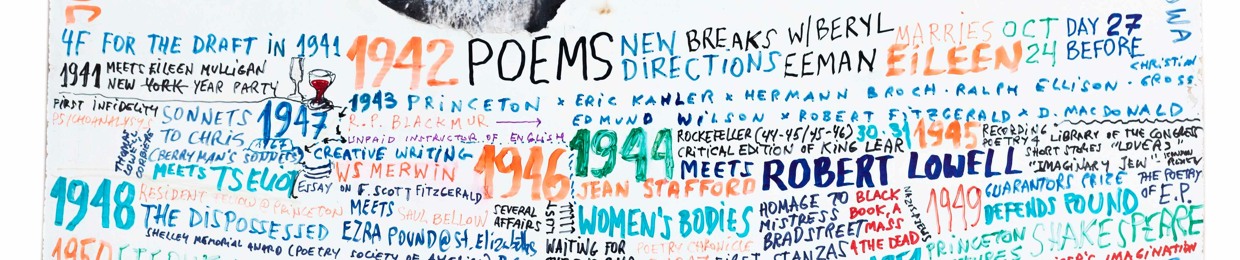 4F FOR THE DRAFT in 1941
1942 POEMS
NEW DIRECTIONS
BREAKS W/BERYL EEMAN
MARRIES EILEEN
OCT 24
DAY 27 BEFORE
1941 MEETS EILEEN MULLIGAN
NEW YORK YEAR PARTY
1943 PRINCETON x ERIC KAHLER x HERMANN BROCH · RALPH ELLISON · CHRISTIAN GROSS
R.P. BLACKMUR
EDMUND WILSON x ROBERT FITZGERALD x D. MACDONALD
UNPAID INSTRUCTOR OF ENGLISH
FIRST INFIDELITY
PSYCHOANALYSIS
SONNETS TO CHRIS 1947
(BERRYMAN'S SONNETS)
MEETS TS ELIOT
CREATIVE WRITING
WS MERWIN
ESSAY ON F. SCOTT FITZGERALD
1946
1944
ROCKEFELLER (44-45/45-46) 30.31
CRITICAL EDITION OF KING LEAR
MEETS ROBERT LOWELL
JEAN STAFFORD
1945
RECORDING POETRY 4 LIBRARY OF THE CONGRESS
SHORT STORIES "LOVERS"
"IMAGINARY JEW" KENYON REVIEW
1948
RESIDENT FELLOW @ PRINCETON
THE DISPOSSESSED
SHELLEY MEMORIAL AWARD (POETRY SOCIETY OF AMERICA
MEETS SAUL BELLOW
EZRA POUND@St. Elizabeths
SEVERAL AFFAIRS
LIST
WOMEN'S BODIES
WAITING FOR
POETRY CHRONICLE
HOMAGE TO MISTRESS BRADSTREET
BLACK BOOK, A MASS 4 THE DEAD
FIRST STANZAS
1949
GUARANTORS PRIZE
DEFENDS POUND
THE POETRY OF E.P.
PRINCETON
SHAKESPEARE
1950
IMAGINATION